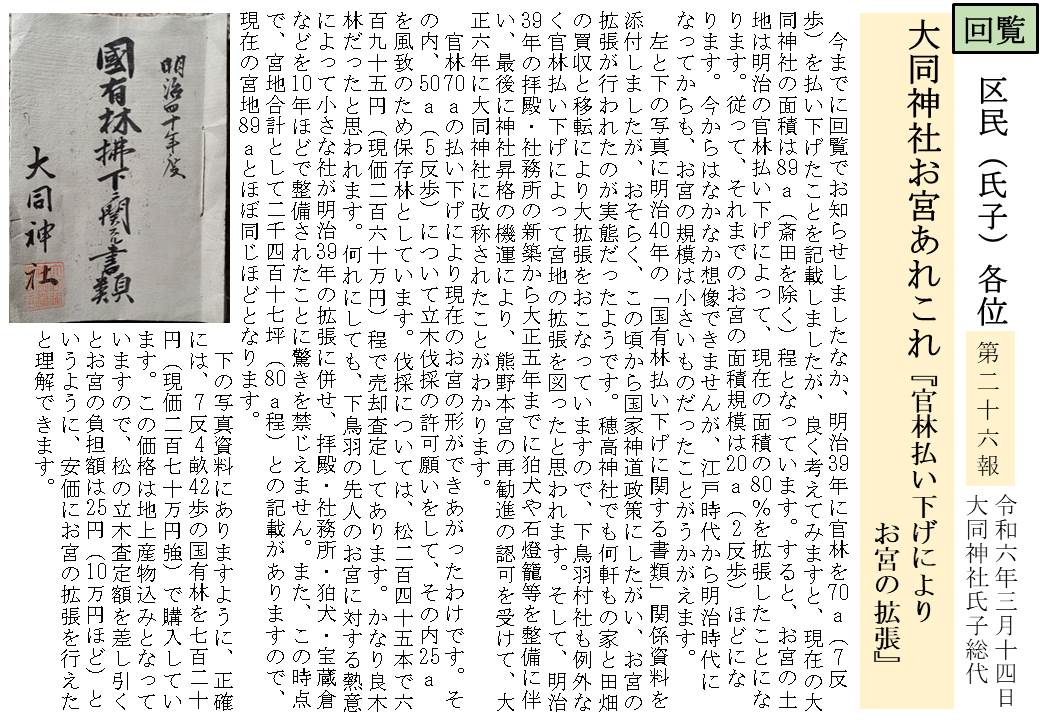 回覧
区民（氏子）各位
第二十六報
令和六年三月十四日
大同神社氏子総代
大同神社お宮あれこれ『官林払い下げにより
お宮の拡張』
今までに回覧でお知らせしましたなか、明治39年に官林を70ａ（７反
歩）を払い下げたことを記載しましたが、良く考えてみますと、現在の大
同神社の面積は89ａ（斎田を除く）程となっています。すると、お宮の土
地は明治の官林払い下げによって、現在の面積の80％を拡張したことにな
ります。従って、それまでのお宮の面積規模は20ａ（２反歩）ほどにな
ります。今からはなかなか想像できませんが、江戸時代から明治時代に
なってからも、お宮の規模は小さいものだったことがうかがえます。
左と下の写真に明治40年の「国有林払い下げに関する書類」関係資料を
添付しましたが、おそらく、この頃から国家神道政策にしたがい、お宮の
拡張が行われたのが実態だったようです。穂高神社でも何軒もの家と田畑
の買収と移転により大拡張をおこなっていますので、下鳥羽村社も例外な
く官林払い下げによって宮地の拡張を図ったと思われます。そして、明治
39年の拝殿・社務所の新築から大正五年までに狛犬や石燈籠等を整備に伴
い、最後に神社昇格の機運により、熊野本宮の再勧進の認可を受けて、大
正六年に大同神社に改称されたことがわかります。
官林70ａの払い下げにより現在のお宮の形ができあがったわけです。そ
の内、50ａ（５反歩）について立木伐採の許可願いをして、その内25ａ
を風致のため保存林としています。伐採については、松二百四十五本で六
百九十五円（現価二百六十万円）程で売却査定してあります。かなり良木
林だったと思われます。何れにしても、下鳥羽の先人のお宮に対する熱意
によって小さな社が明治39年の拡張に併せ、拝殿・社務所・狛犬・宝蔵倉
などを10年ほどで整備されたことに驚きを禁じえません。また、この時点
で、宮地合計として二千四百十七坪（80ａ程）との記載がありますので、
現在の宮地89ａとほぼ同じほどとなります。
明治四十年度
國有林拂下ニ関スル書類
大同神社
下の写真資料にありますように、正確
には、７反４畝42歩の国有林を七百二十
円（現価二百七十万円強）で購入してい
ます。この価格は地上産物込みとなって
いますので、松の立木査定額を差し引く
とお宮の負担額は25円（10万円ほど）と
いうように、安価にお宮の拡張を行えた
と理解できます。